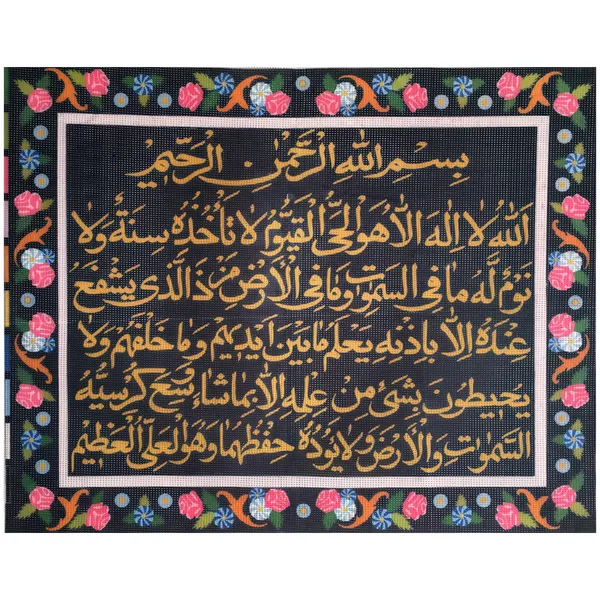 بِسْمِ اللهِ الرَّحْمٰنِ الرَّحِيْمِ
اَللهُ لَا اِلٰهَ اِلَّا هُوَ الْحَيُّ الْقَيُّوْمُ لَا تَأْخُذُهُ سِنَةٌ وَلَا
نَوْمٌ لَهُ مَا فِي السَّمٰوَاتِ وَمَا فِي الْاَرْضِ مَنْ ذَا الَّذِي يَشْفَعُ
عِنْدَهُ اِلَّا بِاِذْنِهِ يَعْلَمُ مَا بَيْنَ اَيْدِيْهِمْ وَمَا خَلْفَهُمْ وَلَا
يُحِيْطُوْنَ بِشَيْءٍ مِنْ عِلْمِهِ اِلَّا بِمَا شَاءَ وَسِعَ كُرْسِيُّهُ
السَّمٰوَاتِ وَالْاَرْضَ وَلَا يَؤُدُهُ حِفْظُهُمَا وَهُوَ الْعَلِيُّ الْعَظِيْمُ